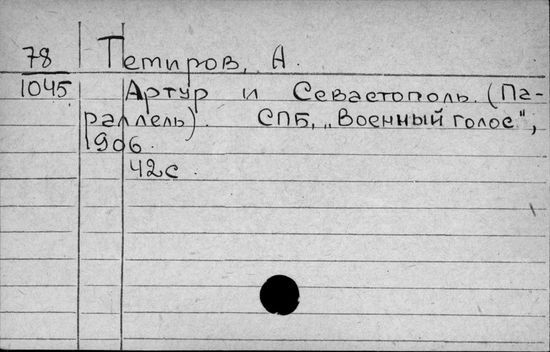 78 Петиров, А.
1045 Артур и Севастополь. (Па-
раллель). СПБ, „Военный голос",
1906.
42с.